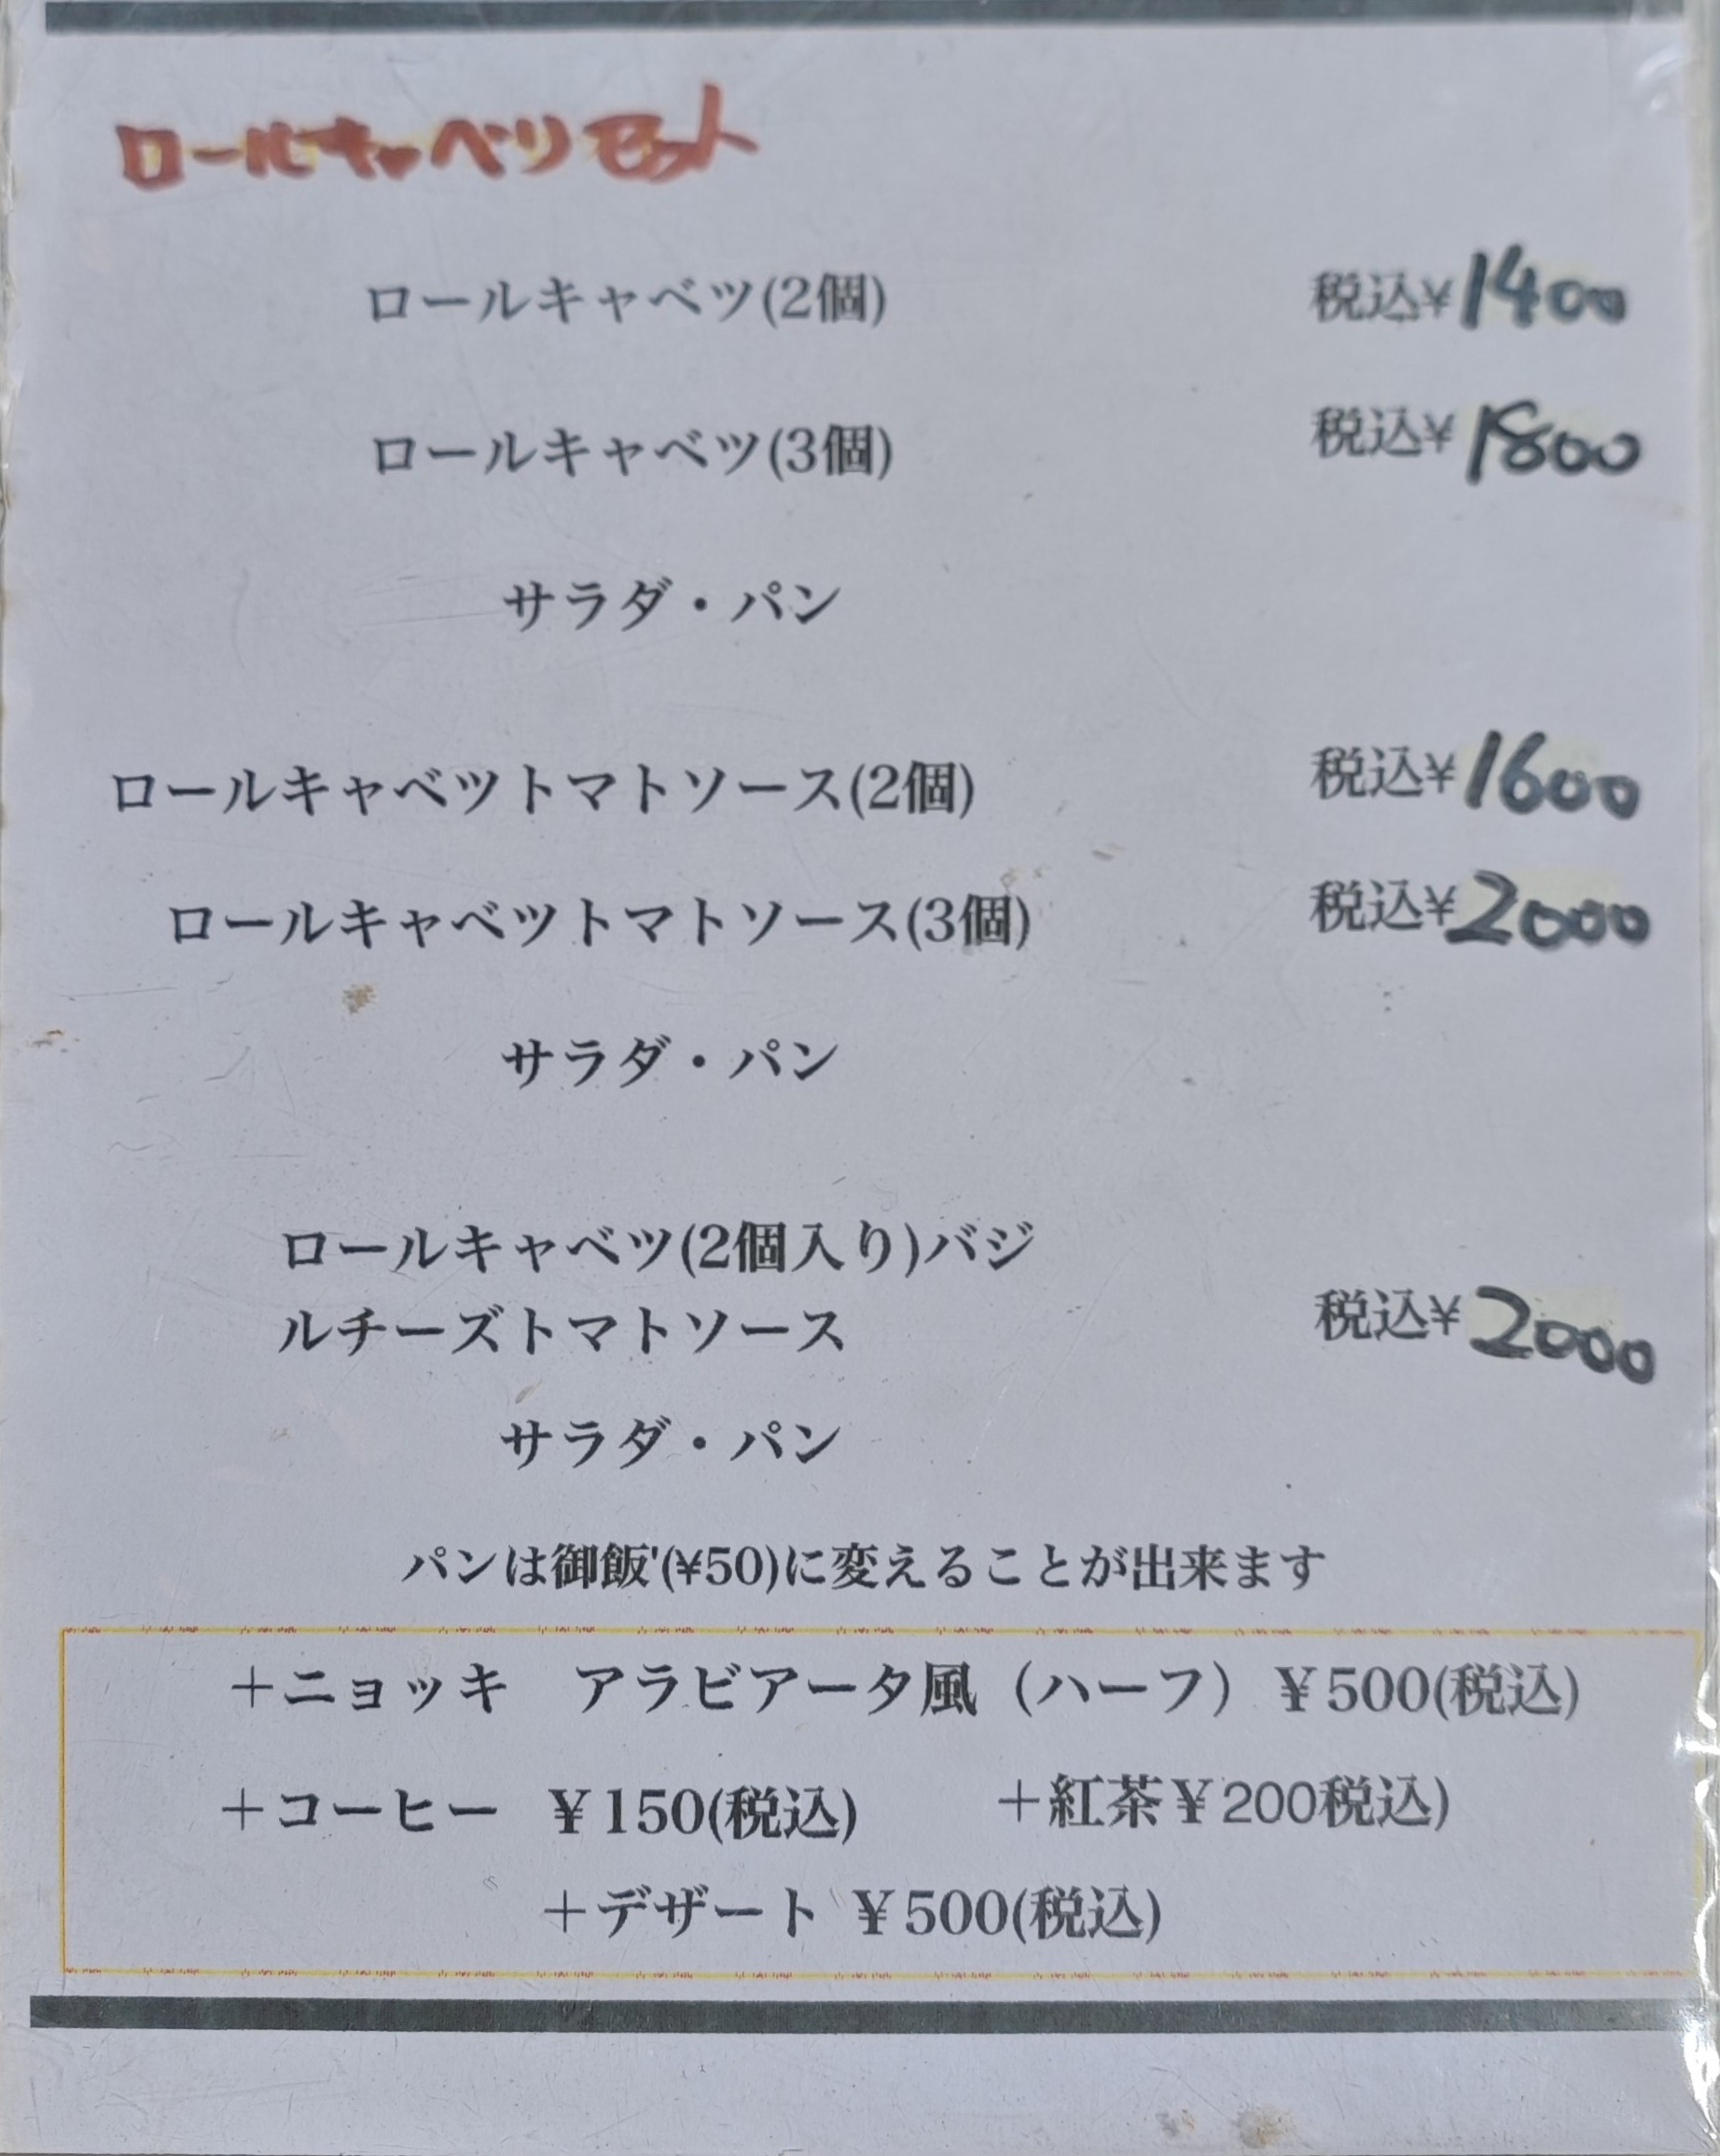 ロールキャベツセット
ロールキャベツ(2個) 税込¥1400
ロールキャベツ(3個) 税込¥1800
サラダ・パン
ロールキャベツトマトソース(2個) 税込¥1600
ロールキャベツトマトソース(3個) 税込¥2000
サラダ・パン
ロールキャベツ(2個入り)バジ
ルチーズトマトソース 税込¥2000
サラダ・パン
パンは御飯'(¥50)に変えることが出来ます
＋ニョッキ　アラビアータ風（ハーフ）￥500(税込)
＋コーヒー ￥150(税込) ＋紅茶￥200税込)
＋デザート ￥500(税込)